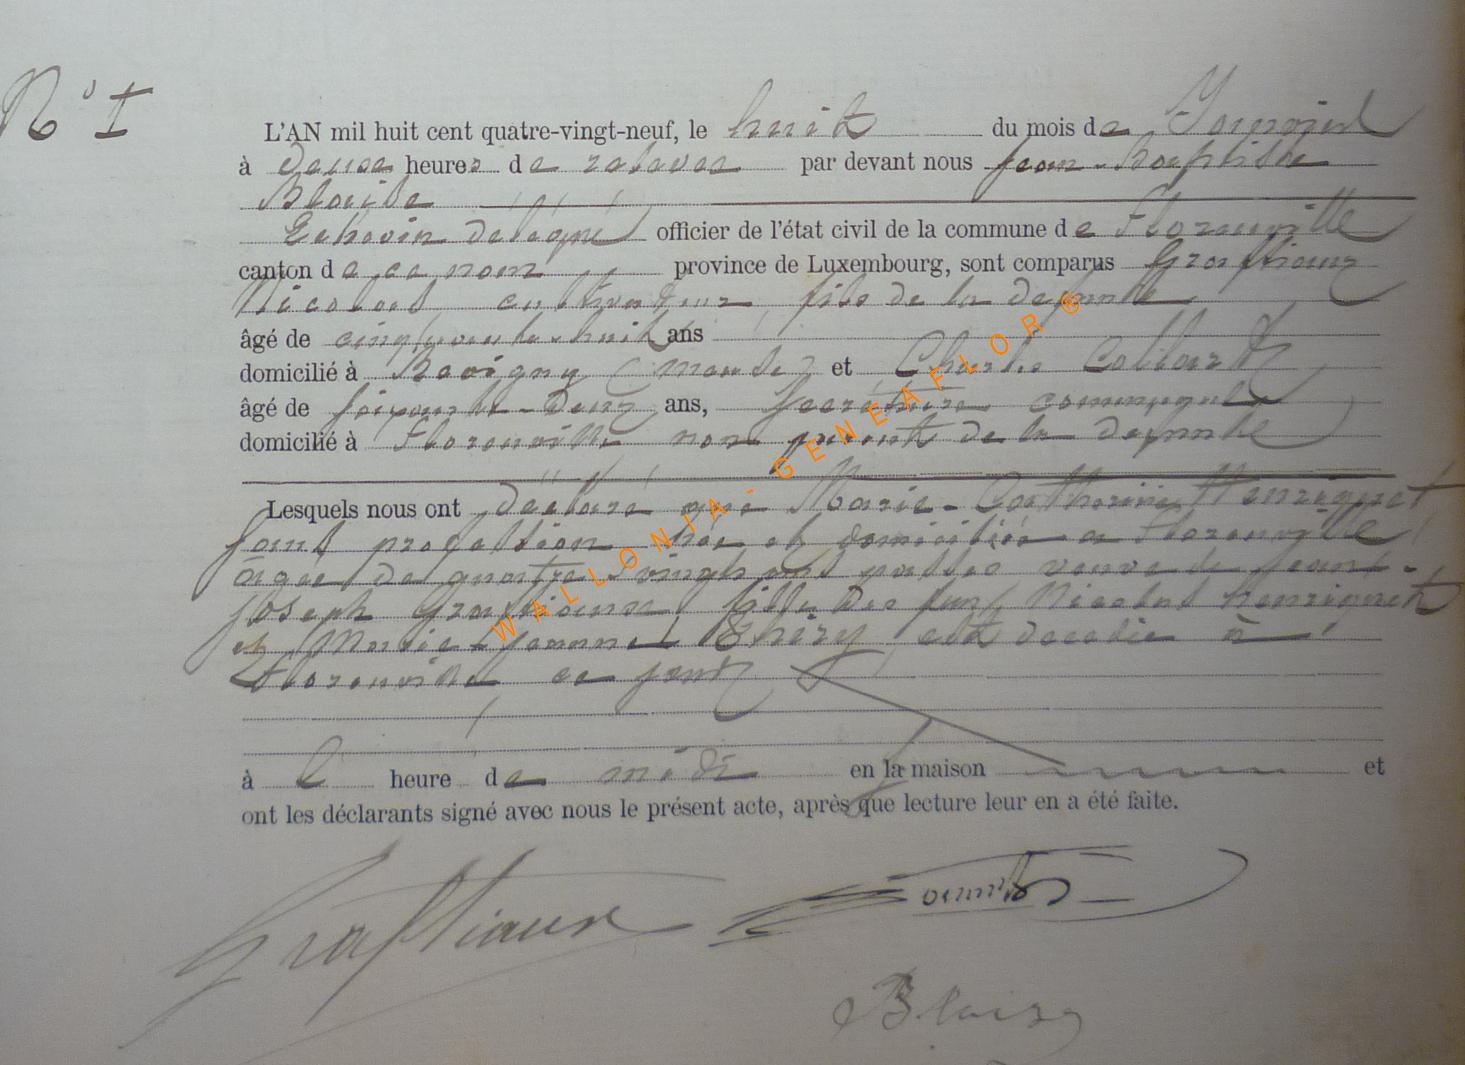 N° 1
L'AN mil huit cent quatre-vingt-neuf, le huit du mois de Janvier
à douze heures de relevée par devant nous Jean-Baptiste
Blaise
Echevin délégué officier de l'état civil de la commune de Florenville
canton de ce nom province de Luxembourg, sont comparus Graftiaux
Nicolas cultivateur, fils de la défunte
âgé de cinquante-huit ans
domicilié à et Charles Collard
âgé de soixante-deux ans, secrétaire communal
domicilié à Florenville non parent de la défunte
Lesquels nous ont déclaré que Marie-Catherine Henriquet
sans profession née et domiciliée à Florenville
âgée de quatre-vingts ans passés veuve de Jean-
Joseph Graftiaux, fille des feux Nicolas Henriquet
et Marie-Jeanne Thiry, est décédée à
Florenville ce jour
à l heure de midi en la maison et
ont les déclarants signé avec nous le présent acte, après que lecture leur en a été faite.
Graftiaux
Blaise
WALLONIA-GENEAFLOR®